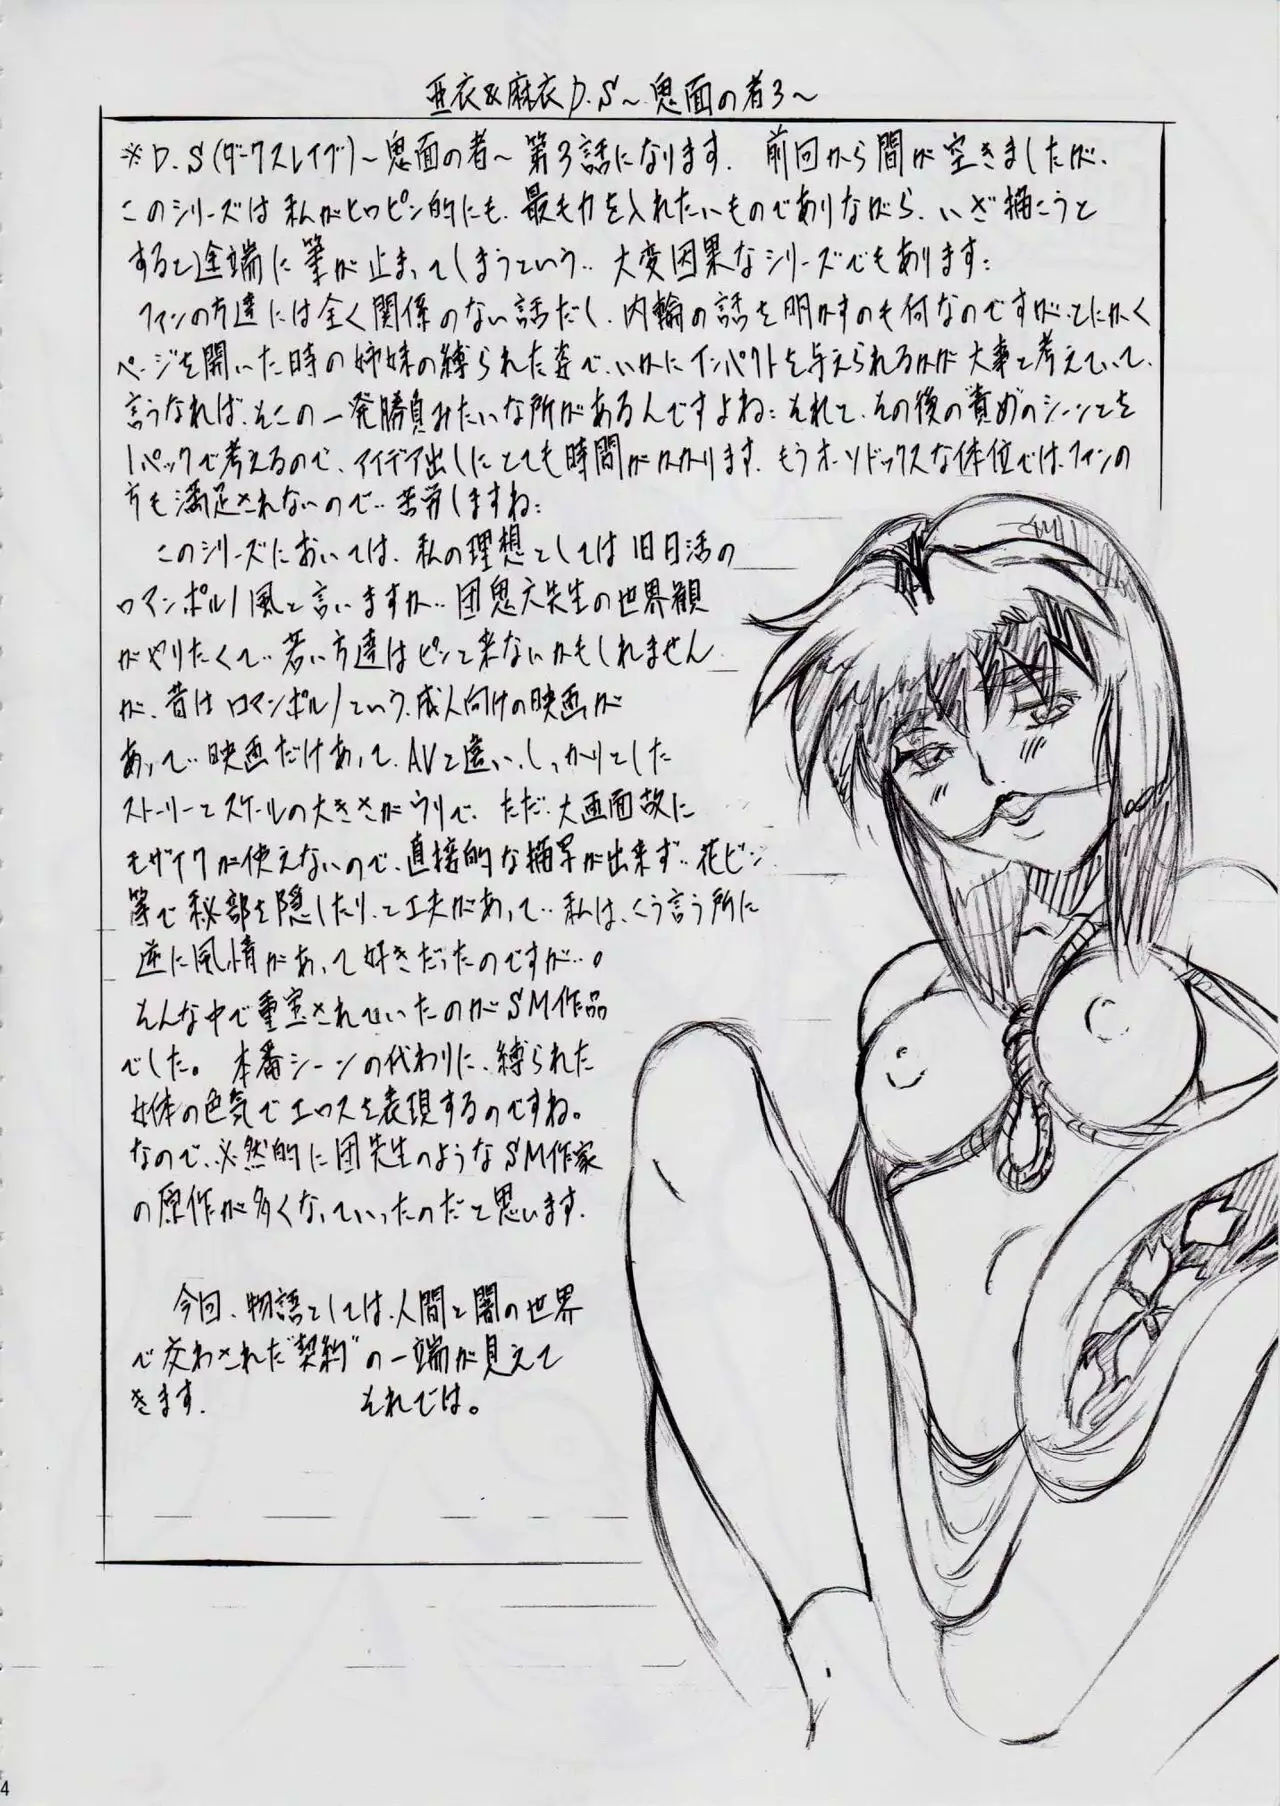 亜衣&麻衣D.S～鬼面の者3～
※D.S(ダークスレイブ)～鬼面の者～第3話になります. 前回から間が空きましたが、
このシリーズは私がヒロピン的にも、最も力を入れたいものでありながら、いざ描こうと
すると途端に筆が止まってしまうという‥大変因果なシリーズでもあります：
ファンの方達には全く関係のない話だし、内輪の話を明かすのも何なのですが‥とにかく
ページを開いた時の姉妹の縛られた姿で、いかにインパクトを与えられるかが大事と考えていて、
言うなれば、そこの一発勝負みたいな所があるんですよね：それと、その後の“責め”のシーンとを
1パックで考えるので、アイデア出しにとても時間がかかります. もうオーソドックスな体位では、ファンの
方も満足されないので‥苦労しますね：
このシリーズにおいては、私の理想としては旧日活の
ロマンポルノ風と言いますか‥団鬼六先生の世界観
がやりたくて‥若い方達はピンと来ないかもしれません
が、昔はロマンポルノという、成人向けの映画が
あって‥映画だけあって、AVと違い、しっかりとした
ストーリーとスケールの大きさがウリで、ただ、大画面故に
モザイクが使えないので、直接的な描写が出来ず‥花ビン
等で秘部を隠したり、と工夫があって‥私は、こう言う所に
逆に風情があって好きだったのですが‥。
そんな中で重宝されていたのがSM作品
でした。本番シーンの代わりに、縛られた
女体の色気でエロスを表現するのですね。
なので、必然的に団先生のようなSM作家
の原作が多くなっていったのだと思います.
今回、物語としては、人間と闇の世界
で交わされた“契約”の一端が見えて
きます. それでは。
4